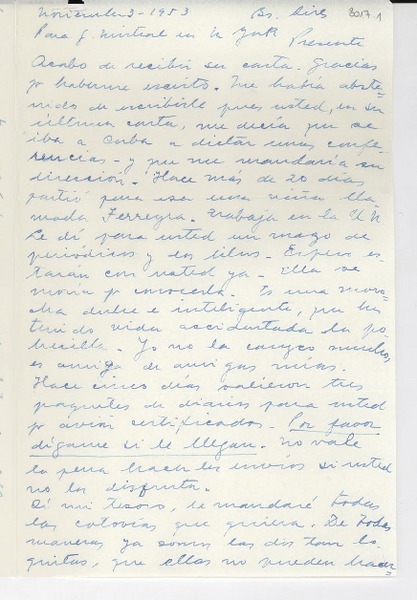 Noviembre 2 - 1953 Bs. Aires 3017.1
Para G. Mistral en N. York Presente
Acabo de recibir su carta. Gracias
p haberme escrito. Me había abste-
nido de escribirle pues usted, en su
última carta, me decía que se
iba a Cuba a dictar unas confe-
rencias - y que me mandaría su
dirección. Hace más de 20 días
partió para esa una niña lla-
mada Ferreyra. Trabaja en la U N
Le dí para usted un mazo de
periódicos y dos libros. Espero es-
tarán con usted ya. Ella se
moría p conocerla. Es una moro-
cha dulce e inteligente, que ha
tenido vida accidentada la po-
brecilla. Yo no la conozco mucho,
es amiga de amigas mías.
Hace cinco días salieron tres
paquetes de diarios para usted
p avión certificados. Por favor
dígame si le llegan. No vale
la pena hacer los envíos si usted
no los disfruta.
Sí mi tesoro, le mandaré todas
las cotorras que quiera. De todas
maneras ya somos las dos tan lo-
quitas, que ellas no pueden hacer